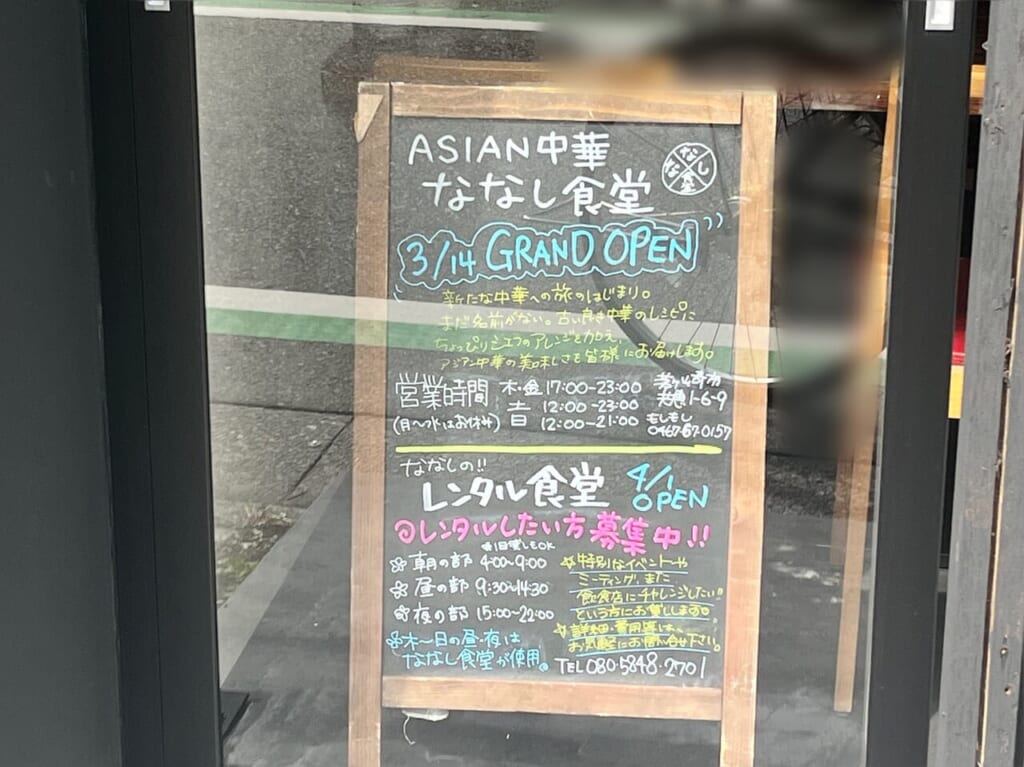 ASIAN中華
ななし食堂
ななし食堂
3/14 GRAND OPEN
新たな中華への旅のはじまり。
まだ名前がない。古い良き中華のレシピに
ちょっぴりシェフのアレンジを加え、
アジアン中華の美味しさを皆様にお届けします。
営業時間 木・金 17:00-23:00
土 12:00-23:00
(月〜水はお休み) 日 12:00-21:00
茅ヶ崎市
1-6-9
もしもし
0467-57-0157
ななしの!!
レンタル食堂 4/1 OPEN
レンタルしたい方募集中!!
1日貸しもOK
朝の部 4:00〜9:00
昼の部 9:30〜14:30
夜の部 15:00〜22:00
木〜日の昼・夜は
ななし食堂が使用。
☆特別なイベントや
ミーティング、また
飲食店にチャレンジしたい!!
という方にお貸しします。
☆詳細・費用等は、
お気軽にお問い合せ下さい。
TEL 080-5848-2701